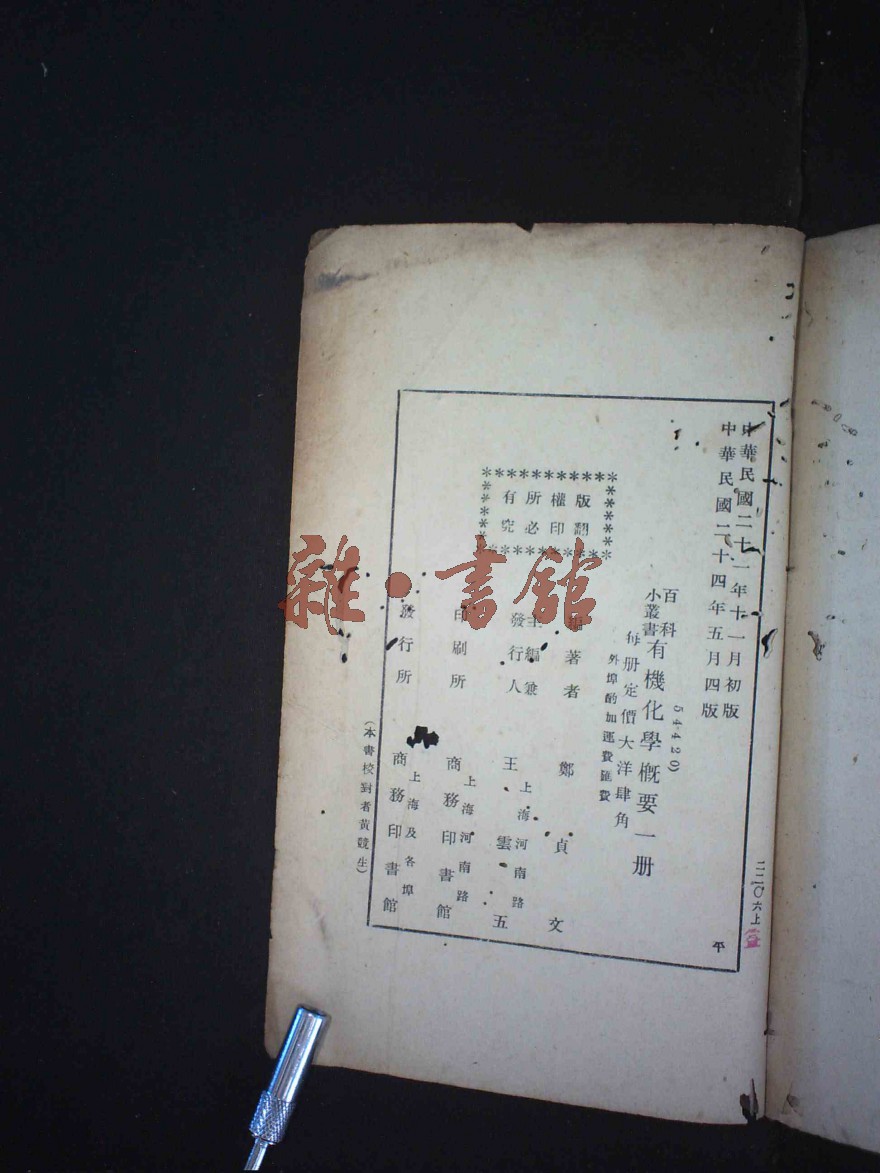 中華民國二十一年十一月初版
中華民國二十四年五月四版
(54420)
百科
小叢書
有機化學概要一册
每册定價大洋肆角
外埠酌加運費匯費
版權所有
翻印必究
編著者 鄭貞文
主編兼
發行人
上海河南路
王雲五
印刷所
上海河南路
商務印書館
發行所
上海及各埠
商務印書館
(本書校對者黃競生)
二二〇六上
平
雜·書館